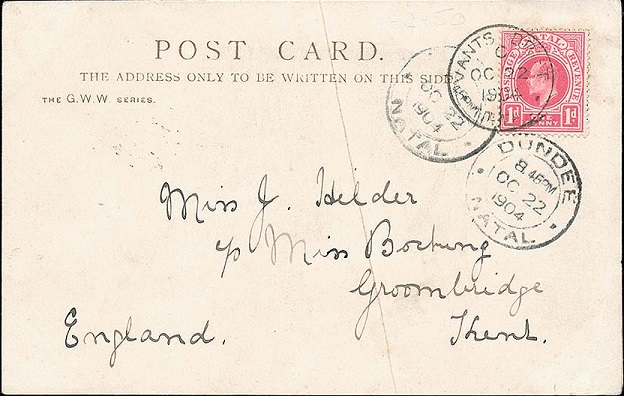 POST CARD.
THE ADDRESS ONLY TO BE WRITTEN ON THIS SIDE
THE G.W.W. SERIES.
OC 22
1904
NATAL
OC 22
NATAL
POSTAGE
REVENUE
1d
ONE PENNY
1d
DUNDEE
8 45PM
OC 22
1904
NATAL
Miss J. Helder
c/o Miss Bocking
Groombridge
England. Kent.